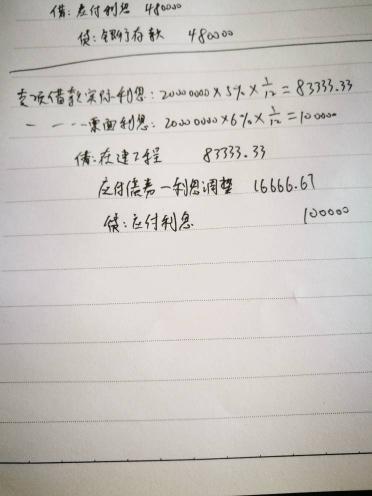 借:应付利息 480000
贷:银行存款 480000
专项借款实际利息:20000000×5%×1/12=83333.33
一 一 - - - 票面利息:20000000×6%×1/12=100000
借:在建工程 83333.33
应付债券一利息调整 16666.67
贷:应付利息 100000